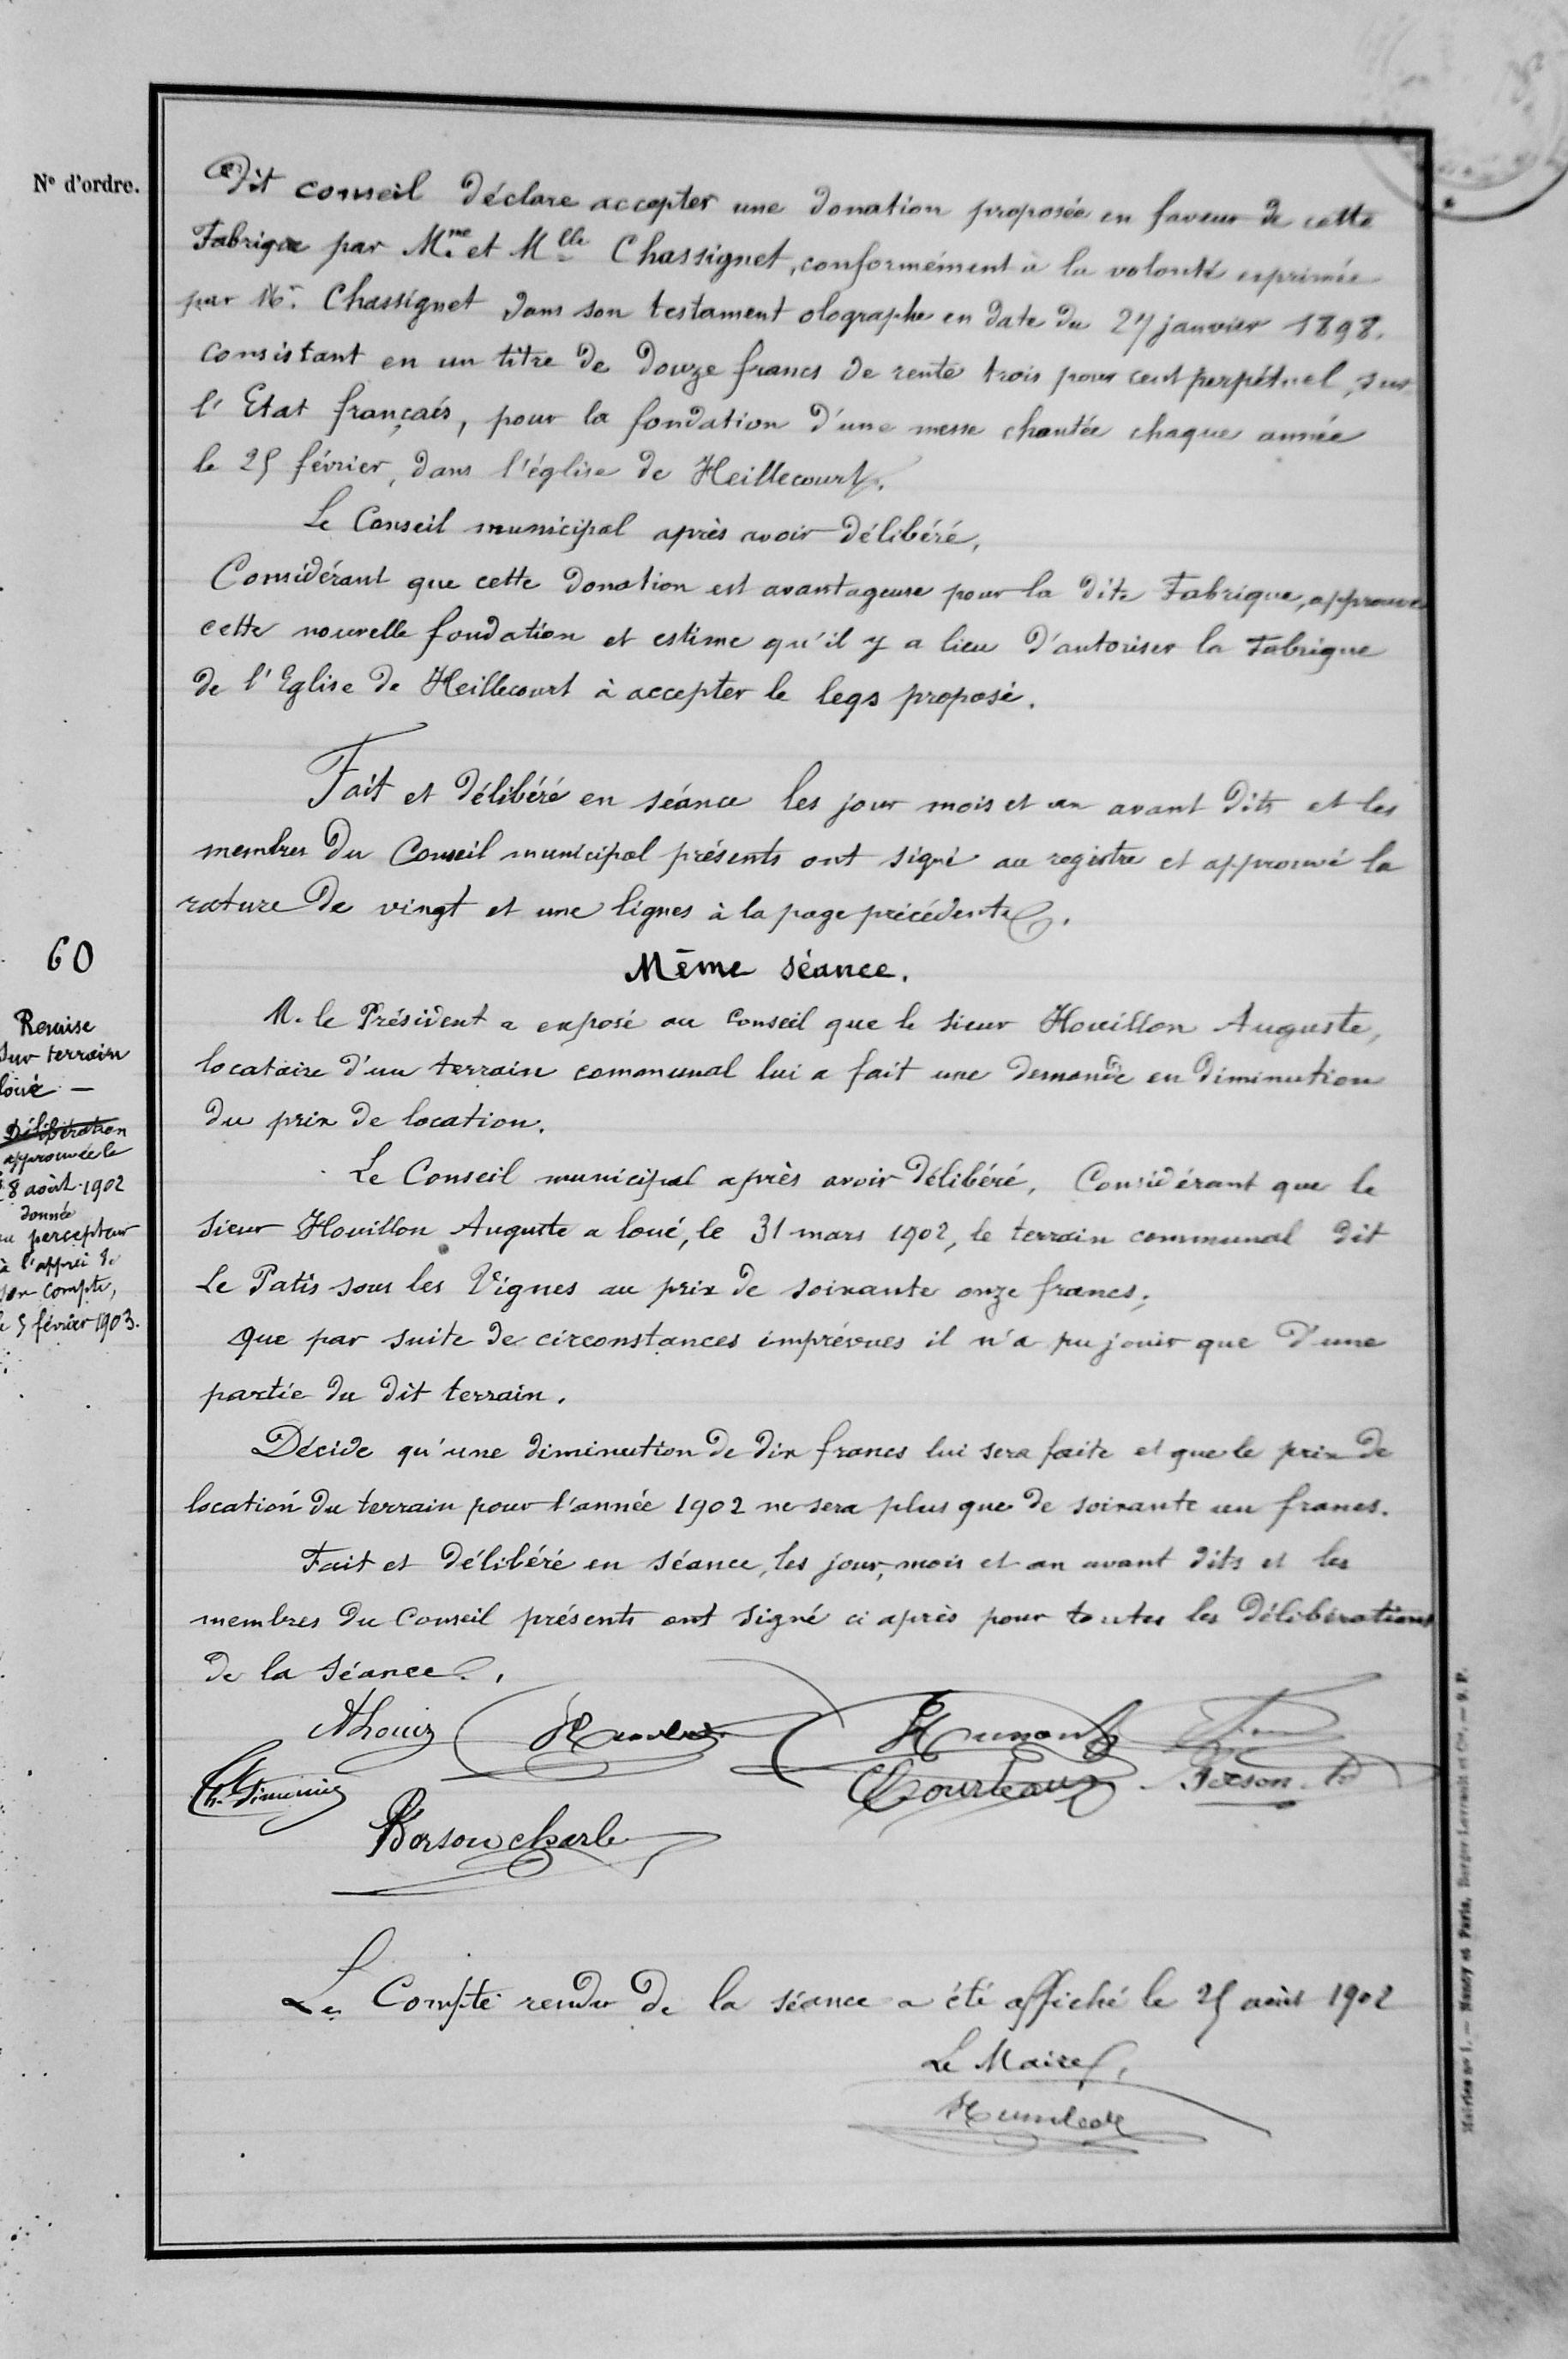 N° d'ordre.
Dit conseil déclare accepter une donation proposée en faveur de cette
Fabrique par Mme et Mlle Chassignet, conformément à la volonté exprimée
par Mr. Chassignet dans son testament olographe en date du 27 janvier 1898.
consistant en un titre de douze francs de rente trois pour cent perpétuel, sur
l'Etat français, pour la fondation d'une messe chantée chaque année
le 25 février, dans l'église de Heillecourt.
Le Conseil municipal après avoir délibéré,
Considérant que cette donation est avantageuse pour la dite Fabrique, approuve
cette nouvelle fondation et estime qu'il y a lieu d'autoriser la Fabrique
de l'Eglise de Heillecourt à accepter le legs proposé.
Fait et délibéré en séance les jour mois et an avant dits et les
membres du Conseil municipal présents ont signé au registre et approuvé la
rature de vingt et une lignes à la page précédente.
60
Même séance.
Remise
sur terrain
loué —
Délibération
approuvée le
8 août 1902
donnée
au percepteur
à l'appui de
son compte,
le 5 février 1903.
M. le Président a exposé au Conseil que le sieur Houillon Auguste,
locataire d'un terrain communal lui a fait une demande en diminution
du prix de location.
Le Conseil municipal après avoir délibéré, Considérant que le
sieur Houillon Auguste a loué, le 31 mars 1902, le terrain communal dit
Le Patis sous les Vignes au prix de soixante onze francs;
que par suite de circonstances imprévues il n'a pu jouir que d'une
partie du dit terrain.
Décide qu'une diminution de dix francs lui sera faite et que le prix de
location du terrain pour l'année 1902 ne sera plus que de soixante un francs.
Fait et délibéré en séance, les jour, mois et an avant dits et les
membres du Conseil présents ont signé ci après pour toutes les délibérations
de la séance.
ALouis
Person
Borson charle
Le Compte rendu de la séance a été affiché le 25 août 1902
Le Maire,
Mairies n° 1. — Nancy et Paris, Berger-Levrault et Cie. — 9. P.